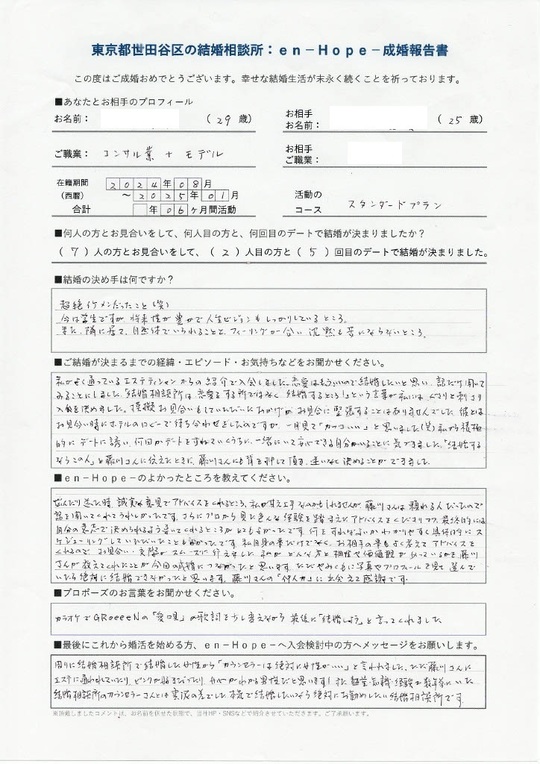 東京都世田谷区の結婚相談所：en－Hope－成婚報告書
この度はご成婚おめでとうございます。幸せな結婚生活が末永く続くことを祈っております。
■あなたとお相手のプロフィール
お名前： （29歳） お相手 お名前： （25歳）
ご職業： コンサル業 + モデル お相手 ご職業：
在籍期間 （西暦） 2024年08月 ～2025年01月
合計 年06ヶ月間活動 活動の コース スタンダードプラン
■何人の方とお見合いをして、何人目の方と、何回目のデートで結婚が決まりましたか？
（7）人の方とお見合いをして、（2）人目の方と（5）回目のデートで結婚が決まりました。
■結婚の決め手は何ですか？
超絶イケメンだったこと(笑)
今は学生ですが、将来性が豊かで人生ビジョンもしっかりしているところ。
また、隣に居て、自然体でいられることと、フィーリングが合い 沈黙も苦にならないところ。
■ご結婚が決まるまでの経緯・エピソード・お気持ちなどをお聞かせください。
私がよく通っているエステティシャンからの紹介で入会しました。恋愛はもういいので結婚したいと思い、話だけ聞いて
みることにしました。「結婚相談所は、恋愛をする所ではなく、結婚するところ」という言葉が私には
入会を決めました。模擬お見合いもしていただいたおかげかお見合に緊張することはありませんでした。彼とは
お見合い時にホテルのロビーで待ち合わせましたが、一目見て「カッコいい」と思いました(笑) から積極
的にデートに誘い、何回かデートをかさねていくうちに、一緒にいて安心できる自分がいることに気づきました。"結婚する
ならこの人"と藤川さんに伝えたときに、藤川さんにも背を押して頂き、迷いなく決めることができました。
■en－Hope－のよかったところを教えてください。
なんたり 時、誠実な意見でアドバイスをくれるところ。私が 藤川さんは 人だったので
話を聞いてくれてうれしかったです。さらにプロから見た 経験を踏まえたアドバイスをくださりつつ、最終的には
自分の意志で決められるよう導いてくれるところがとてもよかったです。何をすればよいかわかりやすく具体的にス
ケジューリングしていただいたことも助かったです。私自身の事だけでなく、お相手の事もよく考えてアドバイスを
くれるので、お見合い・交際がスムーズに行えました。私がどんな方と相性や価値観が合っているかを藤川
さんが教えてくれたことが今回の成婚につながったと思います。ただやみくもに写真やプロフィールで見て選んで
いたら絶対に結婚できなかったと思います。藤川さんの「仲人力」に出会えて感謝です。
■プロポーズのお言葉をお聞かせください。
カラオケでGReeeeNの「愛唄」の歌詞を少し変えながら 最後に「結婚しよう」と言ってくれました。
■最後にこれから婚活を始める方、en－Hope－へ入会検討中の方へメッセージをお願いします。
周りに結婚相談所で結婚した女性から「カウンセラーは絶対に女性がいい」と言われました。ただ藤川さんに
エステに通われていたり、ピンクが好きだったり、女心がわかる男性だと思います！また、知識・経験が
結婚相談所のカウンセラーさんとは実績の差でした。本気で結婚したいなら絶対にお勧めしたい結婚相談所です。
※頂戴しましたコメントは、お名前を伏せた状態で、当社HP・SNSなどで紹介させていただきます。ご了承願います。